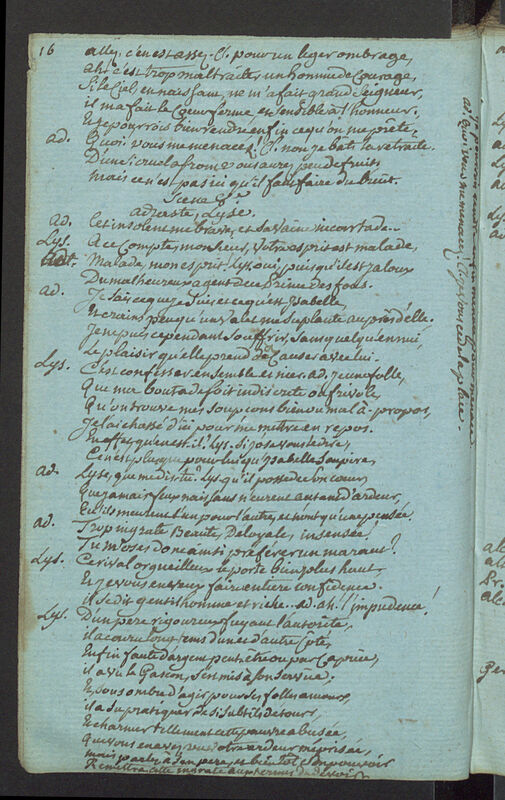 16
allez, c'en est assez. Cl. pour un leger ombrage,
ah! c'est trop maltraiter un homme de Courage,
Si le Ciel en naissant ne m'a fait grand Seigneur,
il m'a fait le Coeur ferme et Sensible à l'honneur.
Et je pourrois bien rendre enfin ce qu'on me prête,
ad. Quoi! vous me menacez! Cl. non, je bats la retraite.
D'un si cruel affront vous aurez peu de fruit
mais ce n'est pas ici qu'il faut faire du bruit.
Scene 8e
adraste, Lyse.
ad. Cet insolent me brave, et sa vaine incartade..
Lys. A ce Compte, monsieur, votre esprit est malade,
ad. Malade, mon esprit! Lys. oui, puisqu'il est jaloux
Du malheureux agent de ce Prince des fous.
ad. Je Sais ce que je suis, et ce qu'est Isabelle,
Et crains peu qu'un valet me Supplante auprès d'elle.
Je ne puis cependant Souffrir Sans quelque ennui,
Le plaisir qu'elle prend de Causer avec lui.
Lys. C'est confesser ensemble et nier. ad. jeune folle,
Que ma boutade soit indiscrete ou frivole,
Qu'on trouve mes Soupçons bien ou mal à-propos,
Je l'ai chassé d'ici pour me mettre en repos.
En effet, qu'en est-il? Lys. Si j'ose vous le dire,
Ce n'est plus que pour lui qu'Isabelle Soupire,
ad. Lyse, que me dis-tu? Lys. qu'il possede un coeur,
Que jamais feux naissans n'eurent autant d'ardeur,
Qu'ils meurent l'un pour l'autre, et n'ont qu'une pensée.
ad. Trop ingrate Beauté, Déloyale, insensée
Tu m'oses donc ainsi préférer un maraut?
Lys. Ce rival orgueilleux le porte bien plus haut,
Et je vous en veux faire entiere confidence.
il se dit gentilhomme et riche.. ad. ah! l'impudence!
Lys. D'un pere rigoureux fuyant l'autorité,
il a couru longtems d'un et d'autre Côté,
Enfin faute d'argent peut-être ou par Caprice,
il a vu le Gascon, s'est mis à son Service.
Et sous ombre d'agir pour Ses folles amours,
il a su pratiquer de si subtils détours,
Et charmer tellement cette pauvre abusée,
Que vous en avez vu votre ardeur méprisée,
mais parlez à Son pere, et bientôt Son pouvoir
Remettra cette ingrate aux termes du devoir
ad. Quoi! vous me menacez!